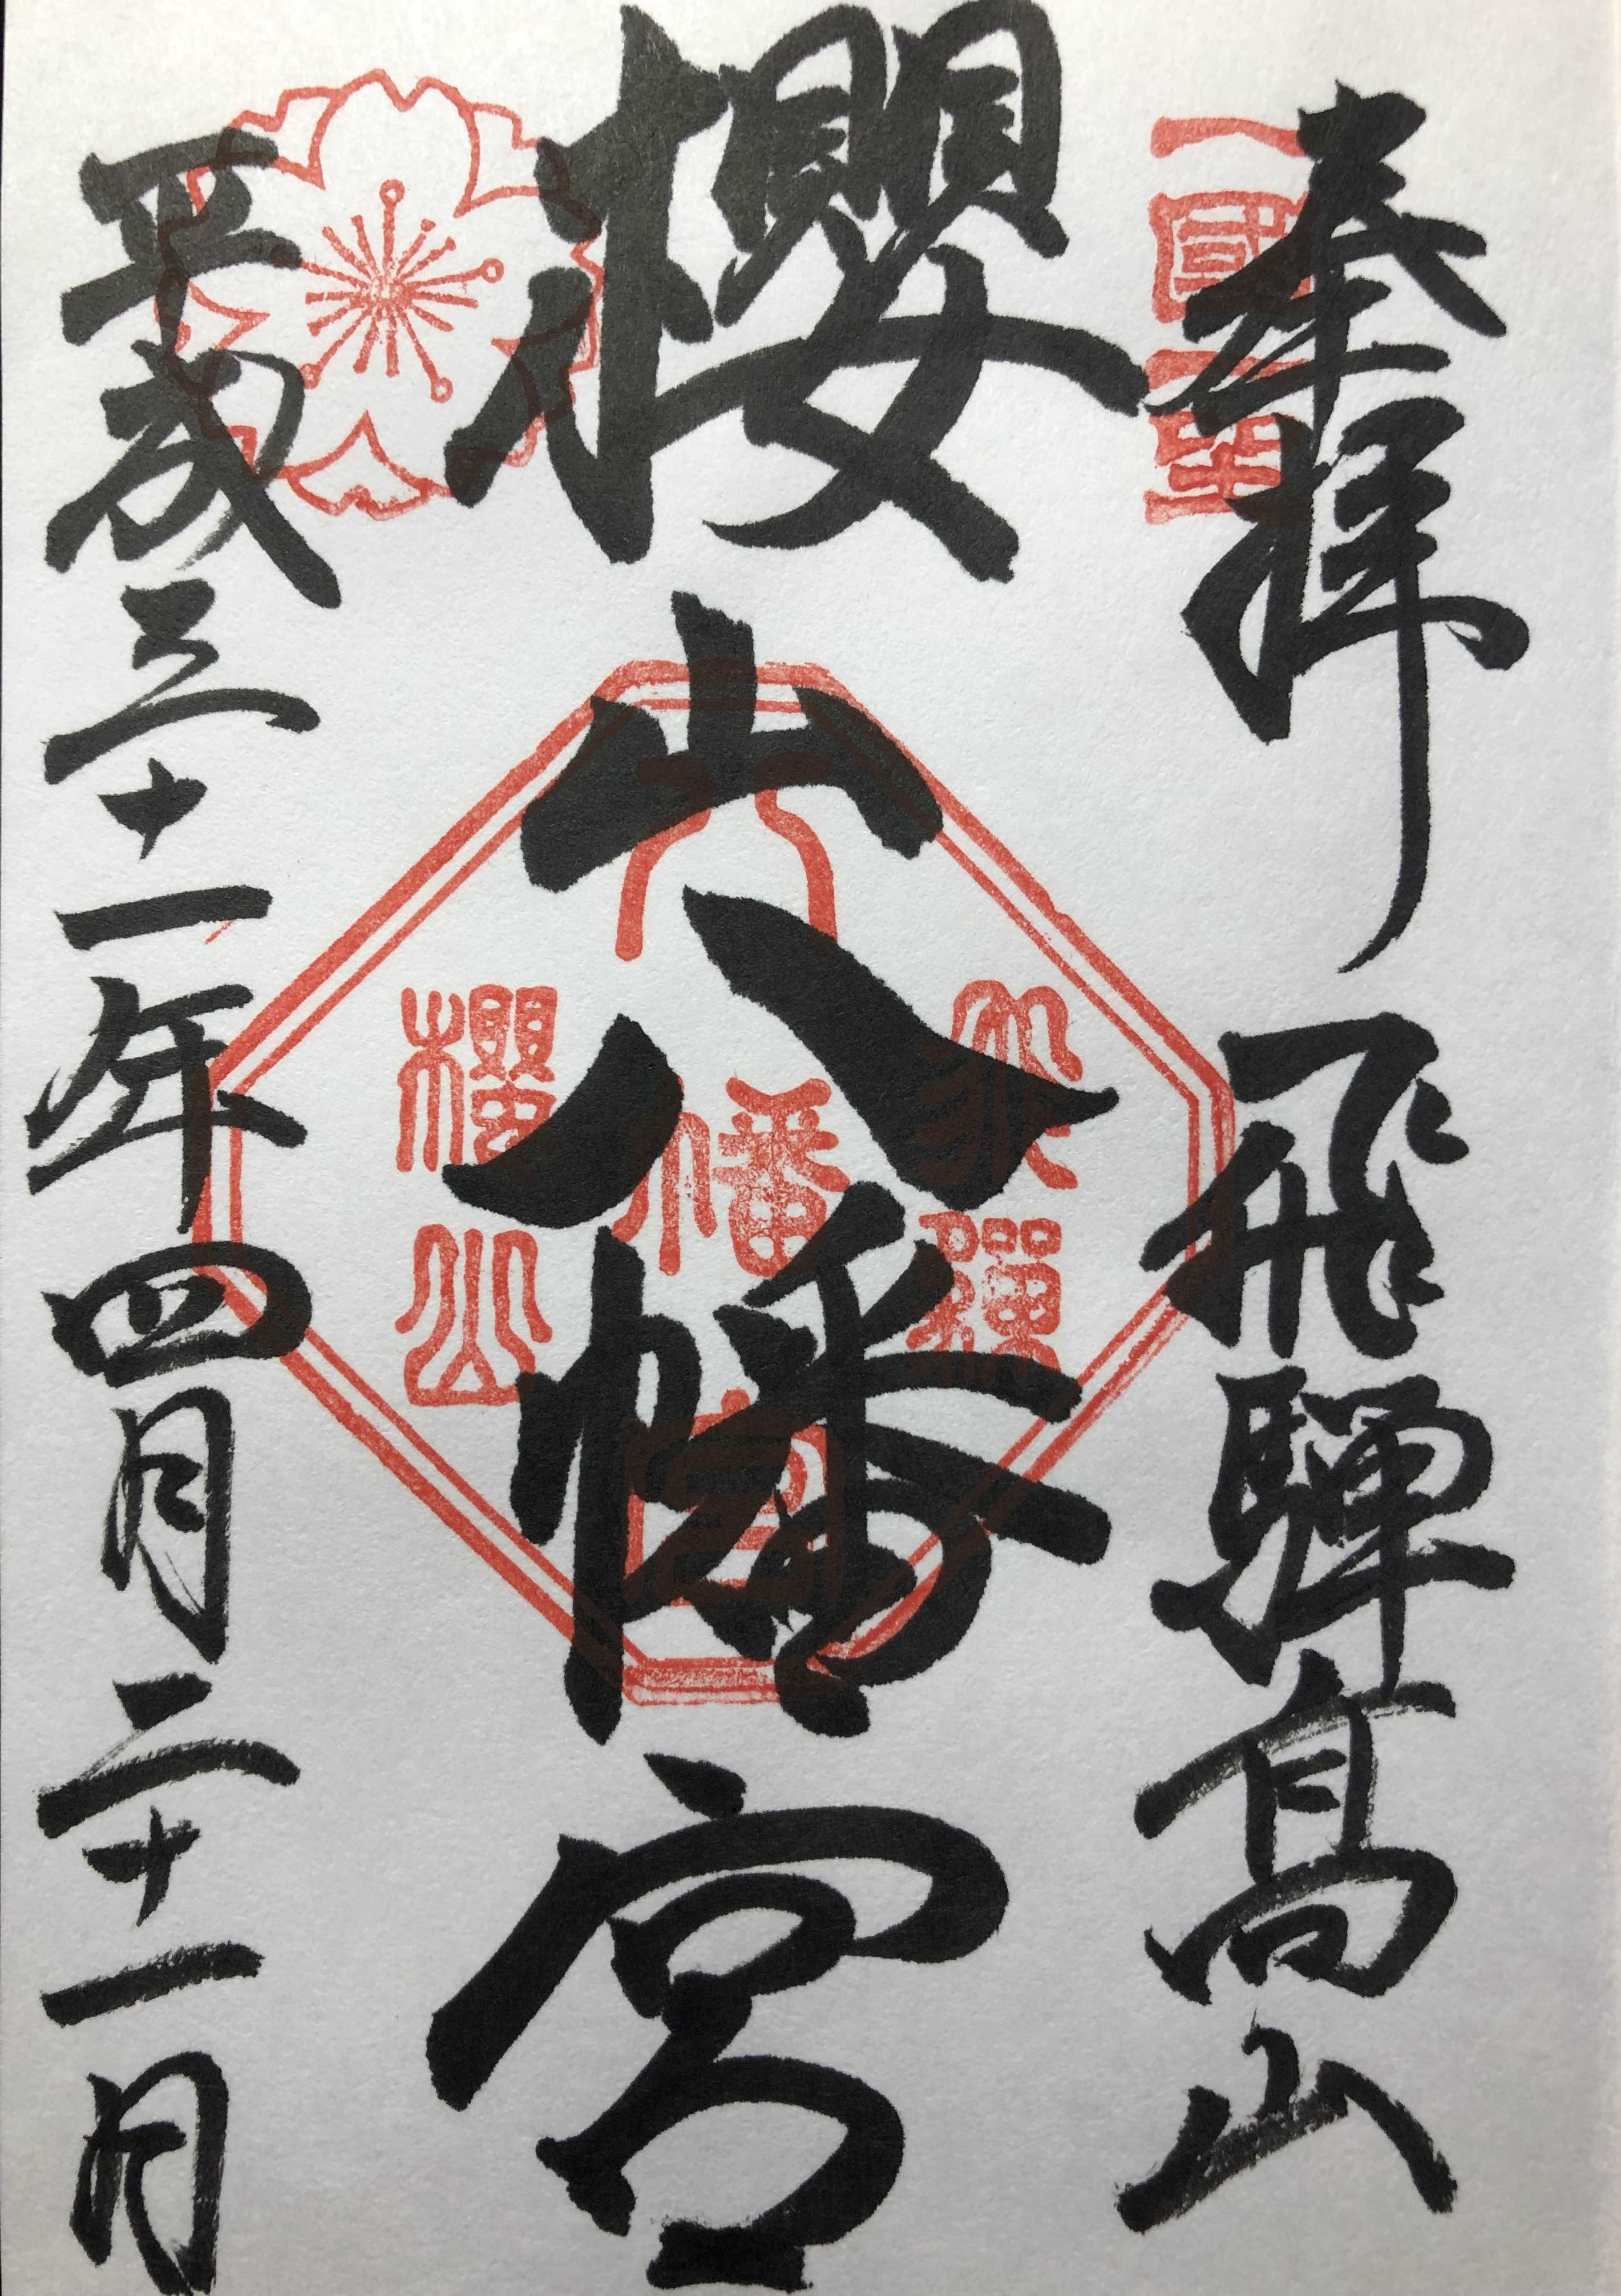 奉拝 飛騨髙山
一國一社
櫻山八幡宮
飛驒
八幡宮
櫻山
平成三十一年四月二十一日